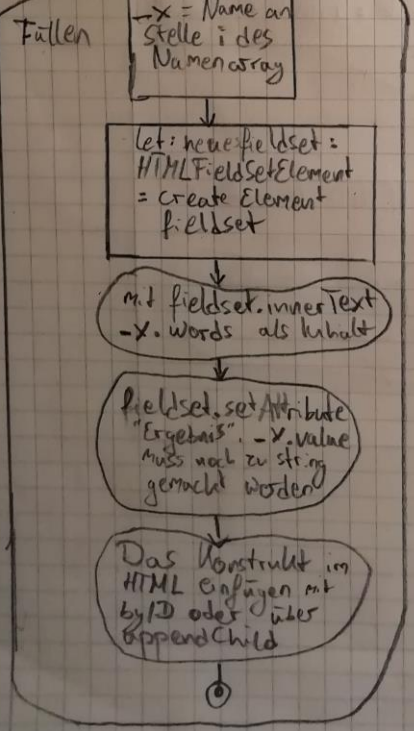 Füllen
-x = Name an
Stelle i des
Namenarray
let: neue fieldset:
HTMLFieldSetElement
= create Element
fieldset
mit fieldset.innerText
-x. words als Inhalt
fieldset.setAttribute
"Ergebnis". -x.value
muss noch zu string
gemacht werden
Das Konstrukt im
HTML einfügen mit
byID oder über
appendChild